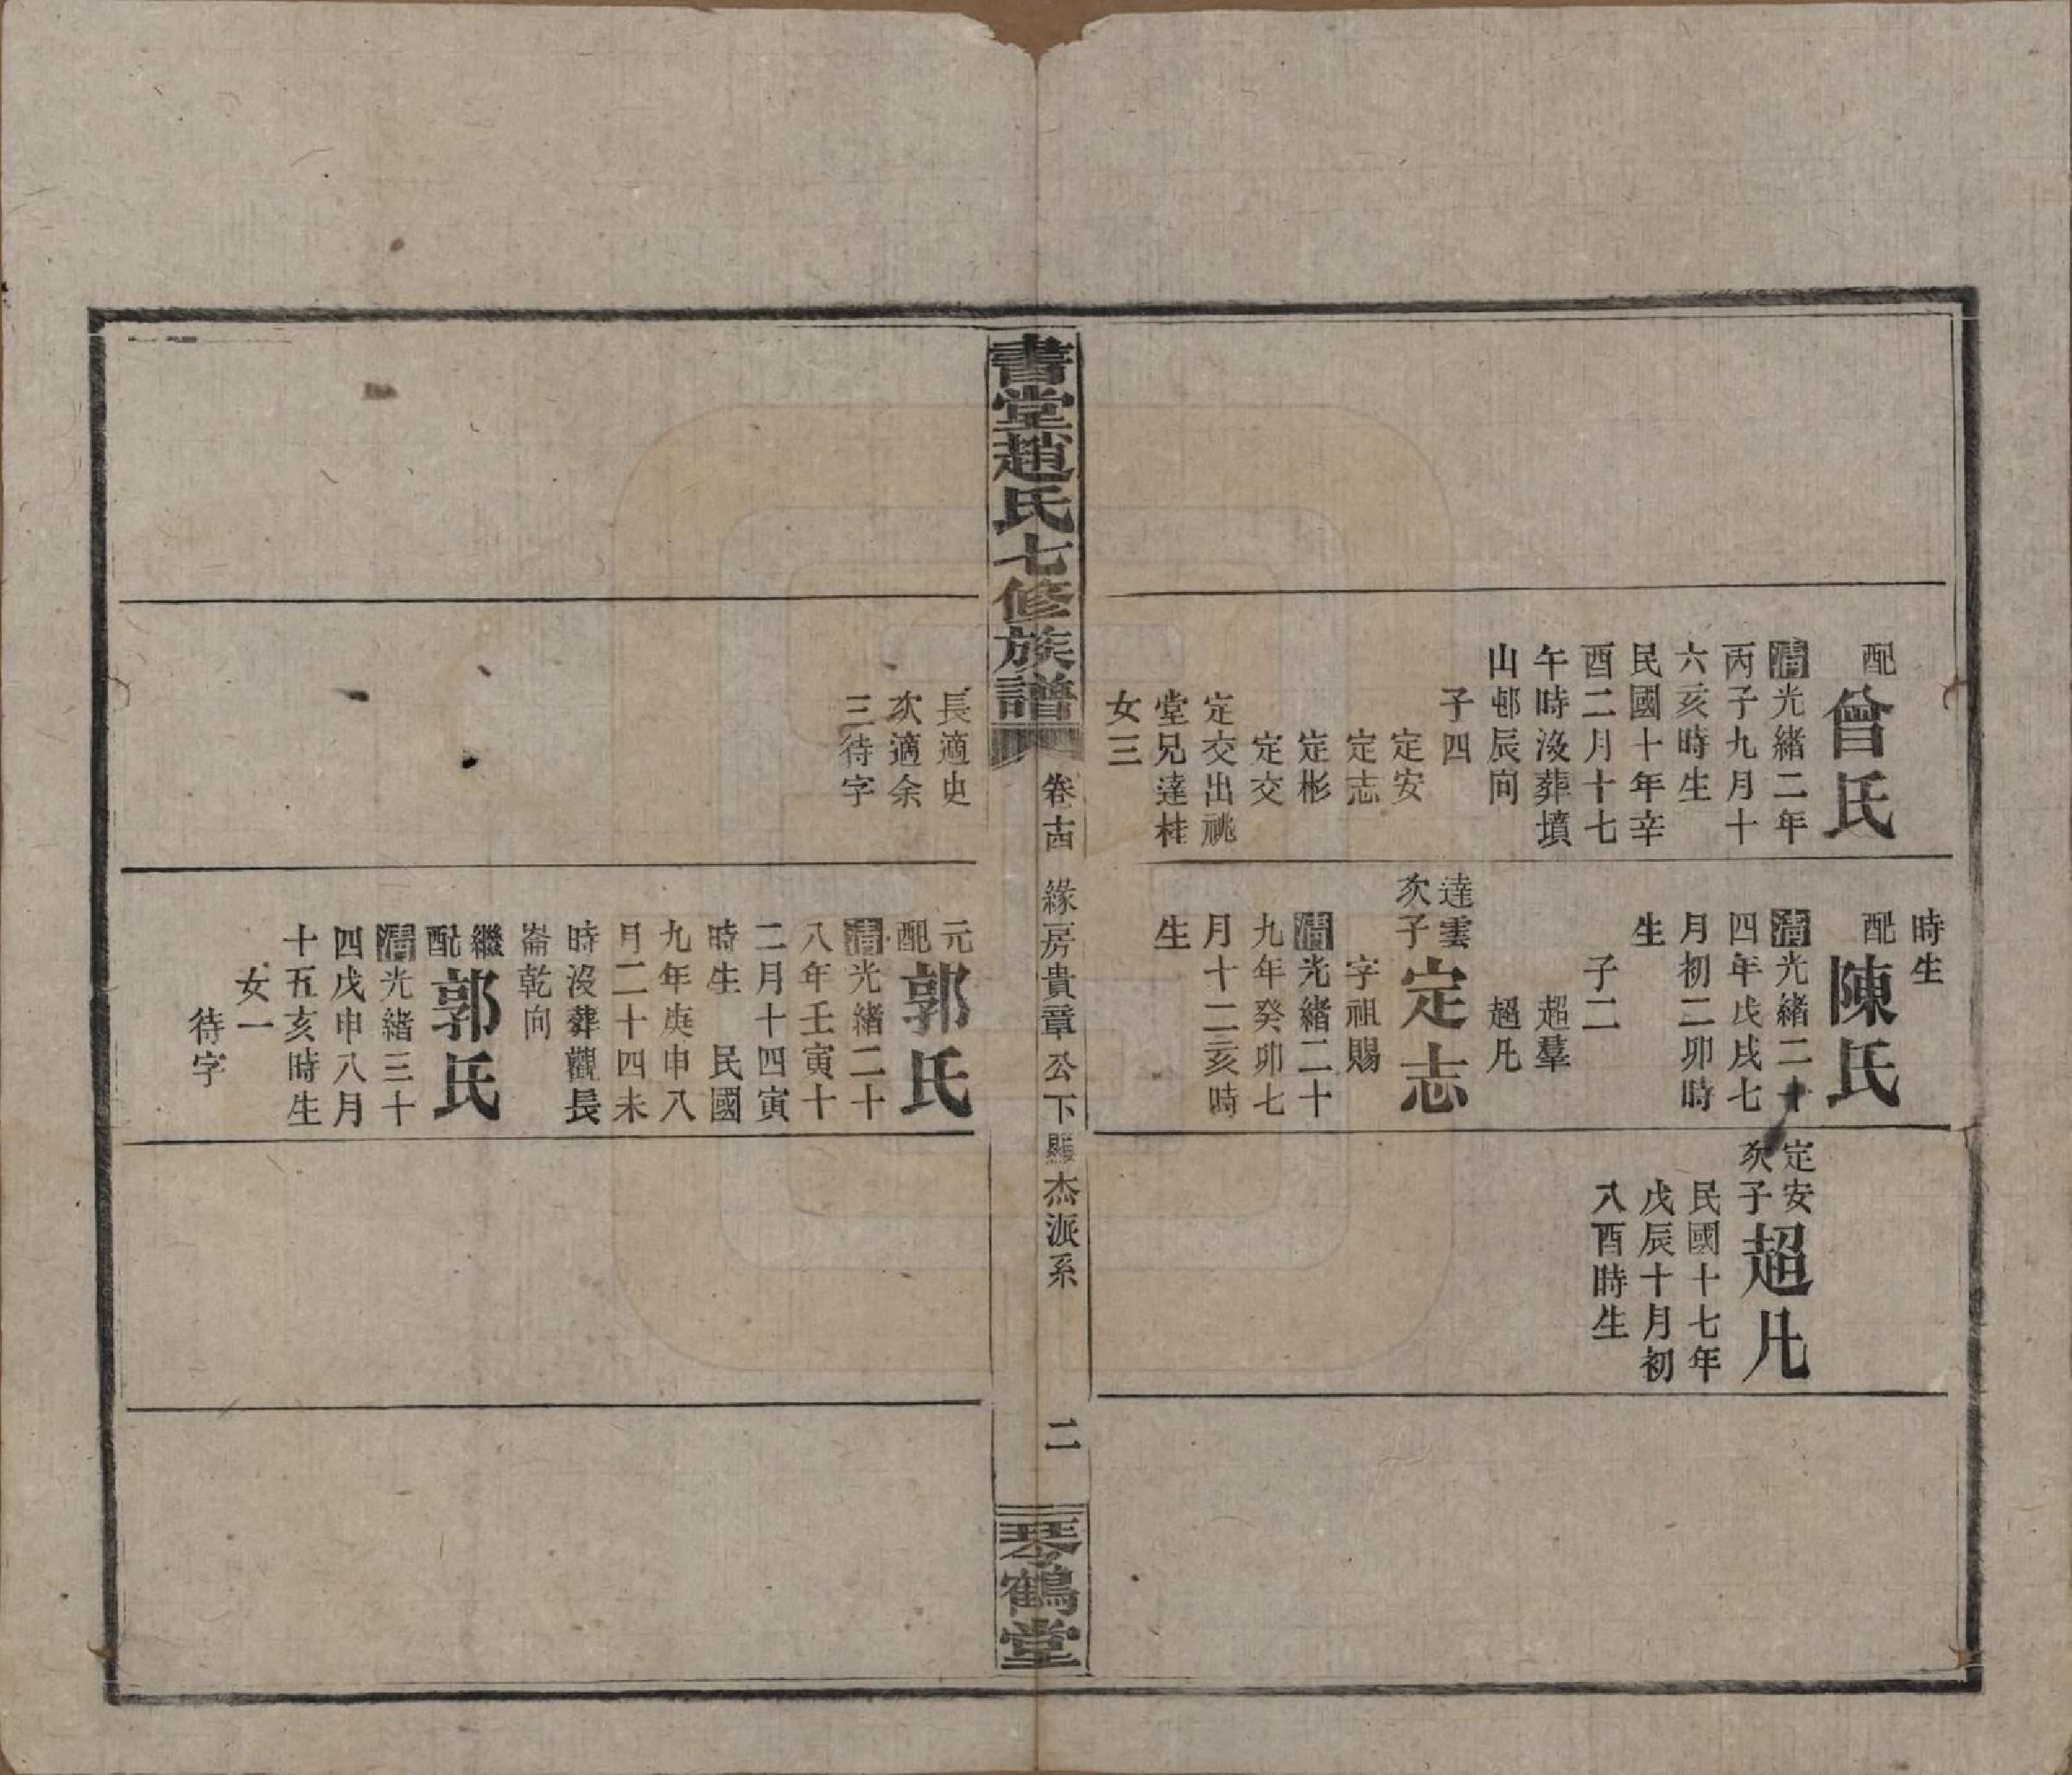 配
曾氏
清光緒二年
丙子九月十
六亥時生
民國十年辛
酉二月十七
午時沒葬墳
山邨辰向
子四
定安
定志
定彬
定交
定交出祧
堂兄達桂
女三
時生
配
陳氏
清光緒二十
四年戊戌七
月初二卯時
生
子二
超羣
超凡
達雲
次子
定志
字祖賜
清光緒二十
九年癸卯七
月十二亥時
生
定安
次子
超凡
民國十七年
戊辰十月初
八酉時生
書堂趙氏七修族譜
卷十四 緣房貴章公下顯杰派系
二
琴鶴堂
長適史
次適余
三待字
元
配
郭氏
清光緒二十
八年壬寅十
二月十四寅
時生 民國
九年庚申八
月二十四未
時沒葬觀長
崙乾向
繼
配
郭氏
清光緒三十
四戊申八月
十五亥時生
女一
待字